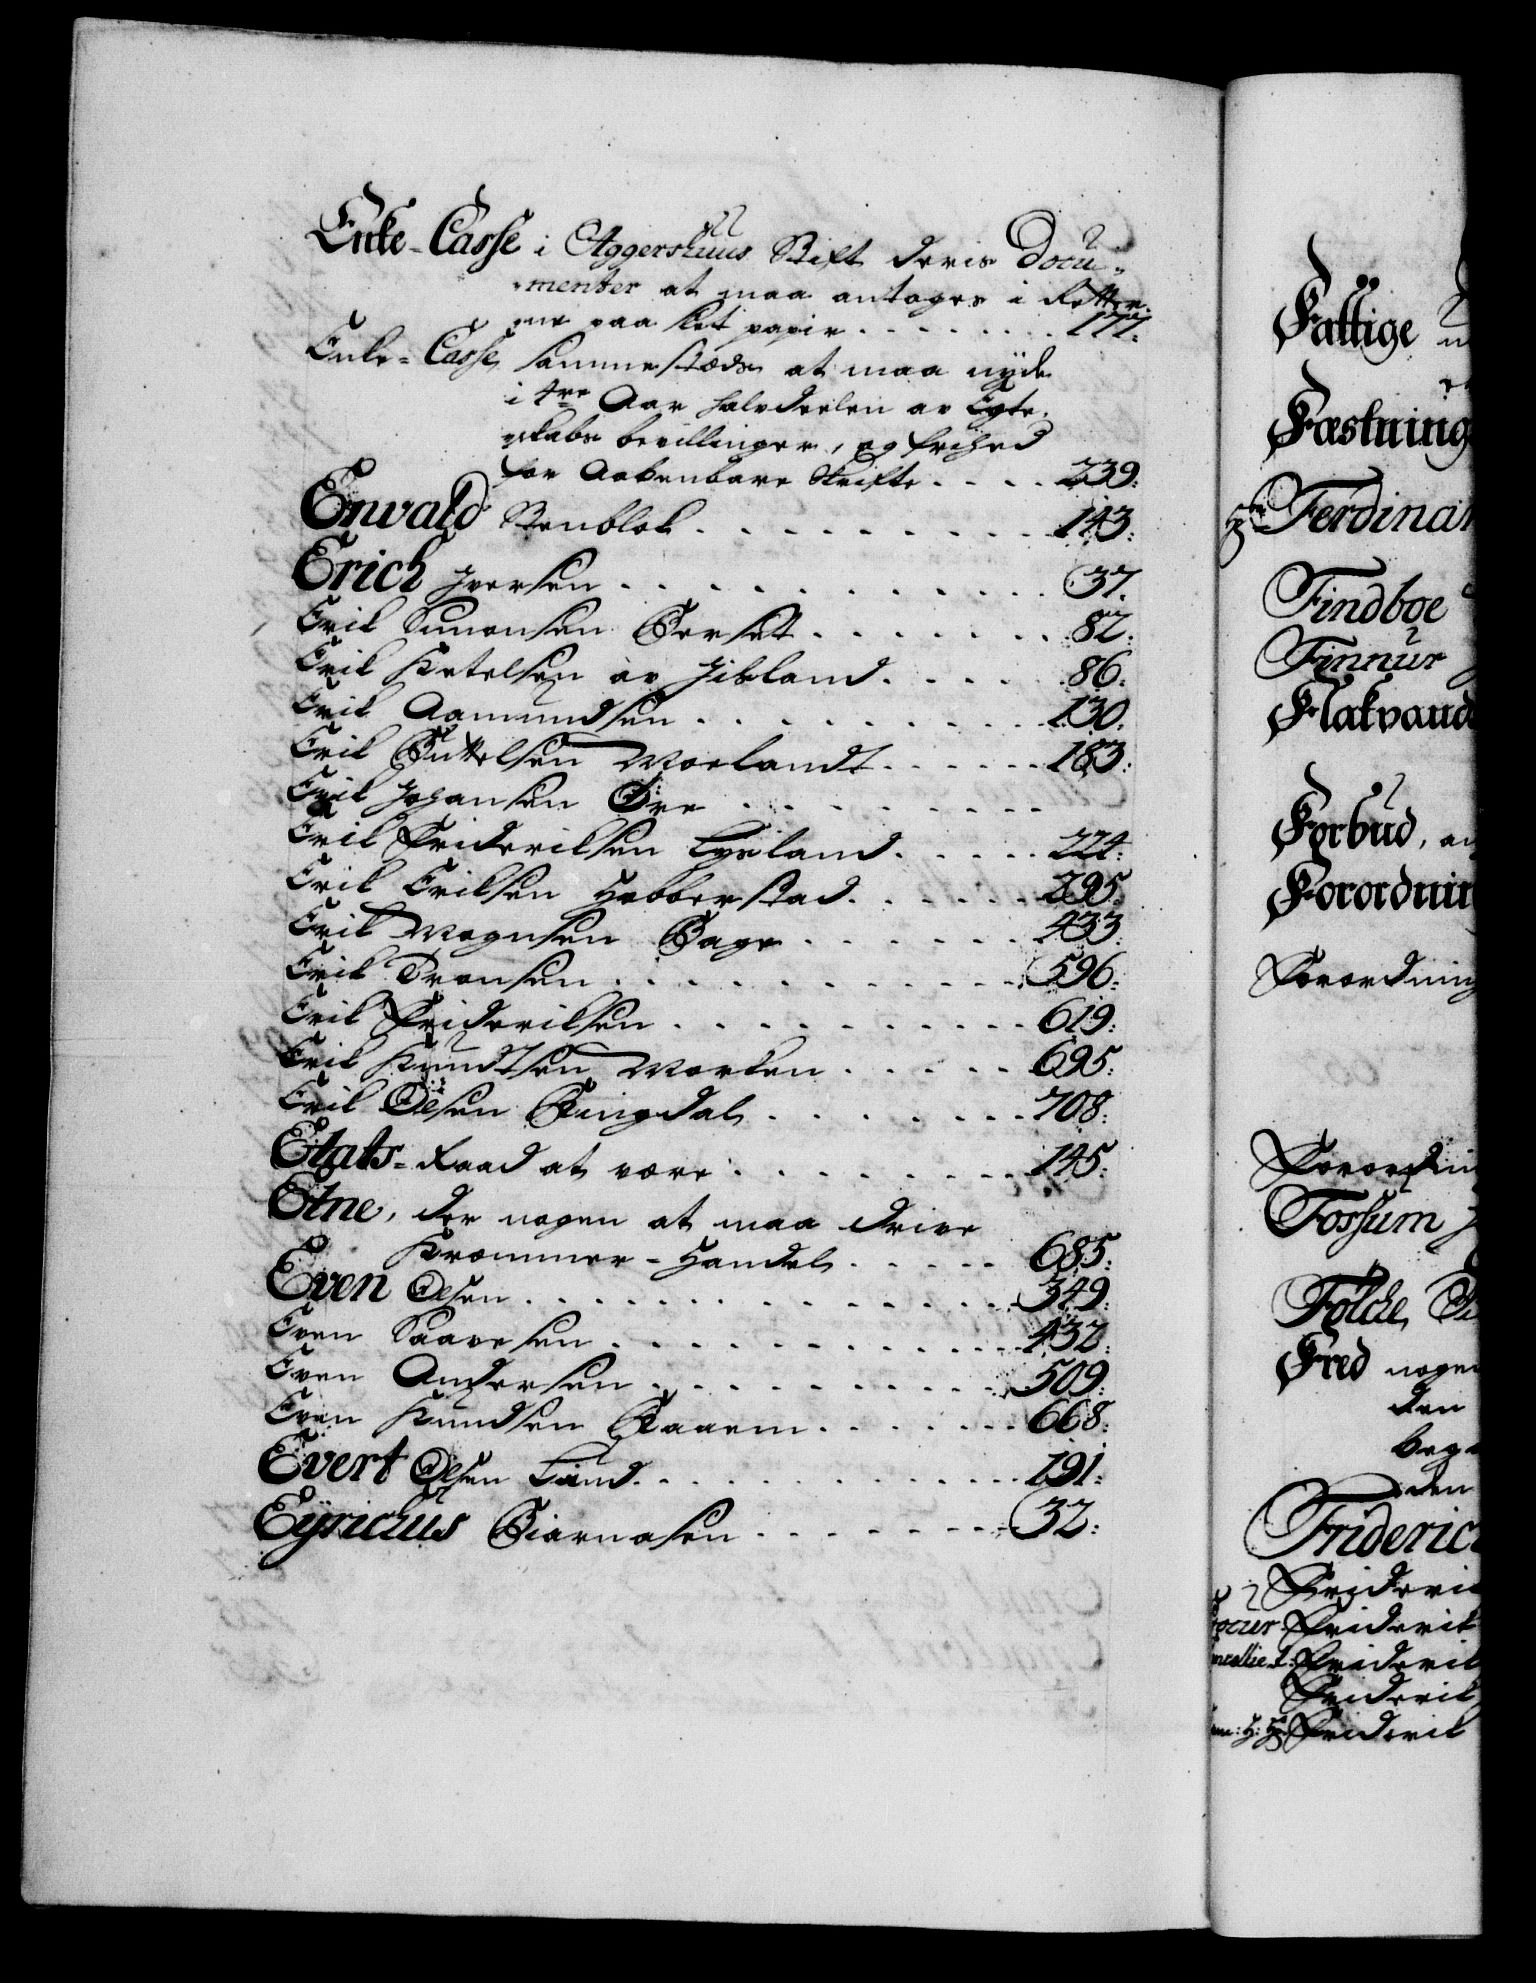 Enke-Casse i Aggershuus Stift deris Docu-
menter at maa antages i Retter-
ne paa slet papir . . . . . . . . 177.
Enke-Casse sammestæds at maa nyde
i 4re Aar halvdeelen av Egte-
skabs bevillinger, og frihed
for Aabenbare Skrifte . . . . 239.
Envald Stenblok . . . . . . . . . 143.
Erich Iversen . . . . . . . . . . . 37.
Erik Simonsen Berset . . . . . . . 82.
Erik Ketelsen av Jisland . . . . . 86.
Erik Aamundsen . . . . . . . . . . 130.
Erik Kittelsen Moelandt . . . . . . 183.
Erik Johansen Øre . . . . . . . . .
Erik Frideriksen Lysland . . . . . 224.
Erik Eriksen Habberstad . . . . . . 295.
Erik Mognsen Bage . . . . . . . 433.
Erik Tronsen . . . . . . . . . . . 596.
Erik Frideriksen . . . . . . . . . . 619.
Erik Knudtsen Morken . . . . . . 695.
Erik Olsen Ringdal . . . . . . . . 708.
Etats-Raad at være . . . . . . . . 145.
Etne, der nogen at maa drive
Kræmmer-Handel . . . . . 685.
Even Olsen . . . . . . . . . . . . . 349.
Even Saavesen . . . . . . . . . . . 432.
Even Andersen . . . . . . . . . . 509.
Even Knudsen Raaem . . . . . . 668.
Evert Olsen Lund . . . . . . . . . . 191.
Eyrichus Biarnasen . . . . . . . 32.
Fattige
Fæstning
Ferdinan
Findboe
Finnur
Flakvand
Forbud, an
Forordnin
Forordning
Forordnin
Fossum
Folche
Fred nogen
den
beg
den
Frideric
Frideri
Friderik
Friderik
Friderik
Friderik